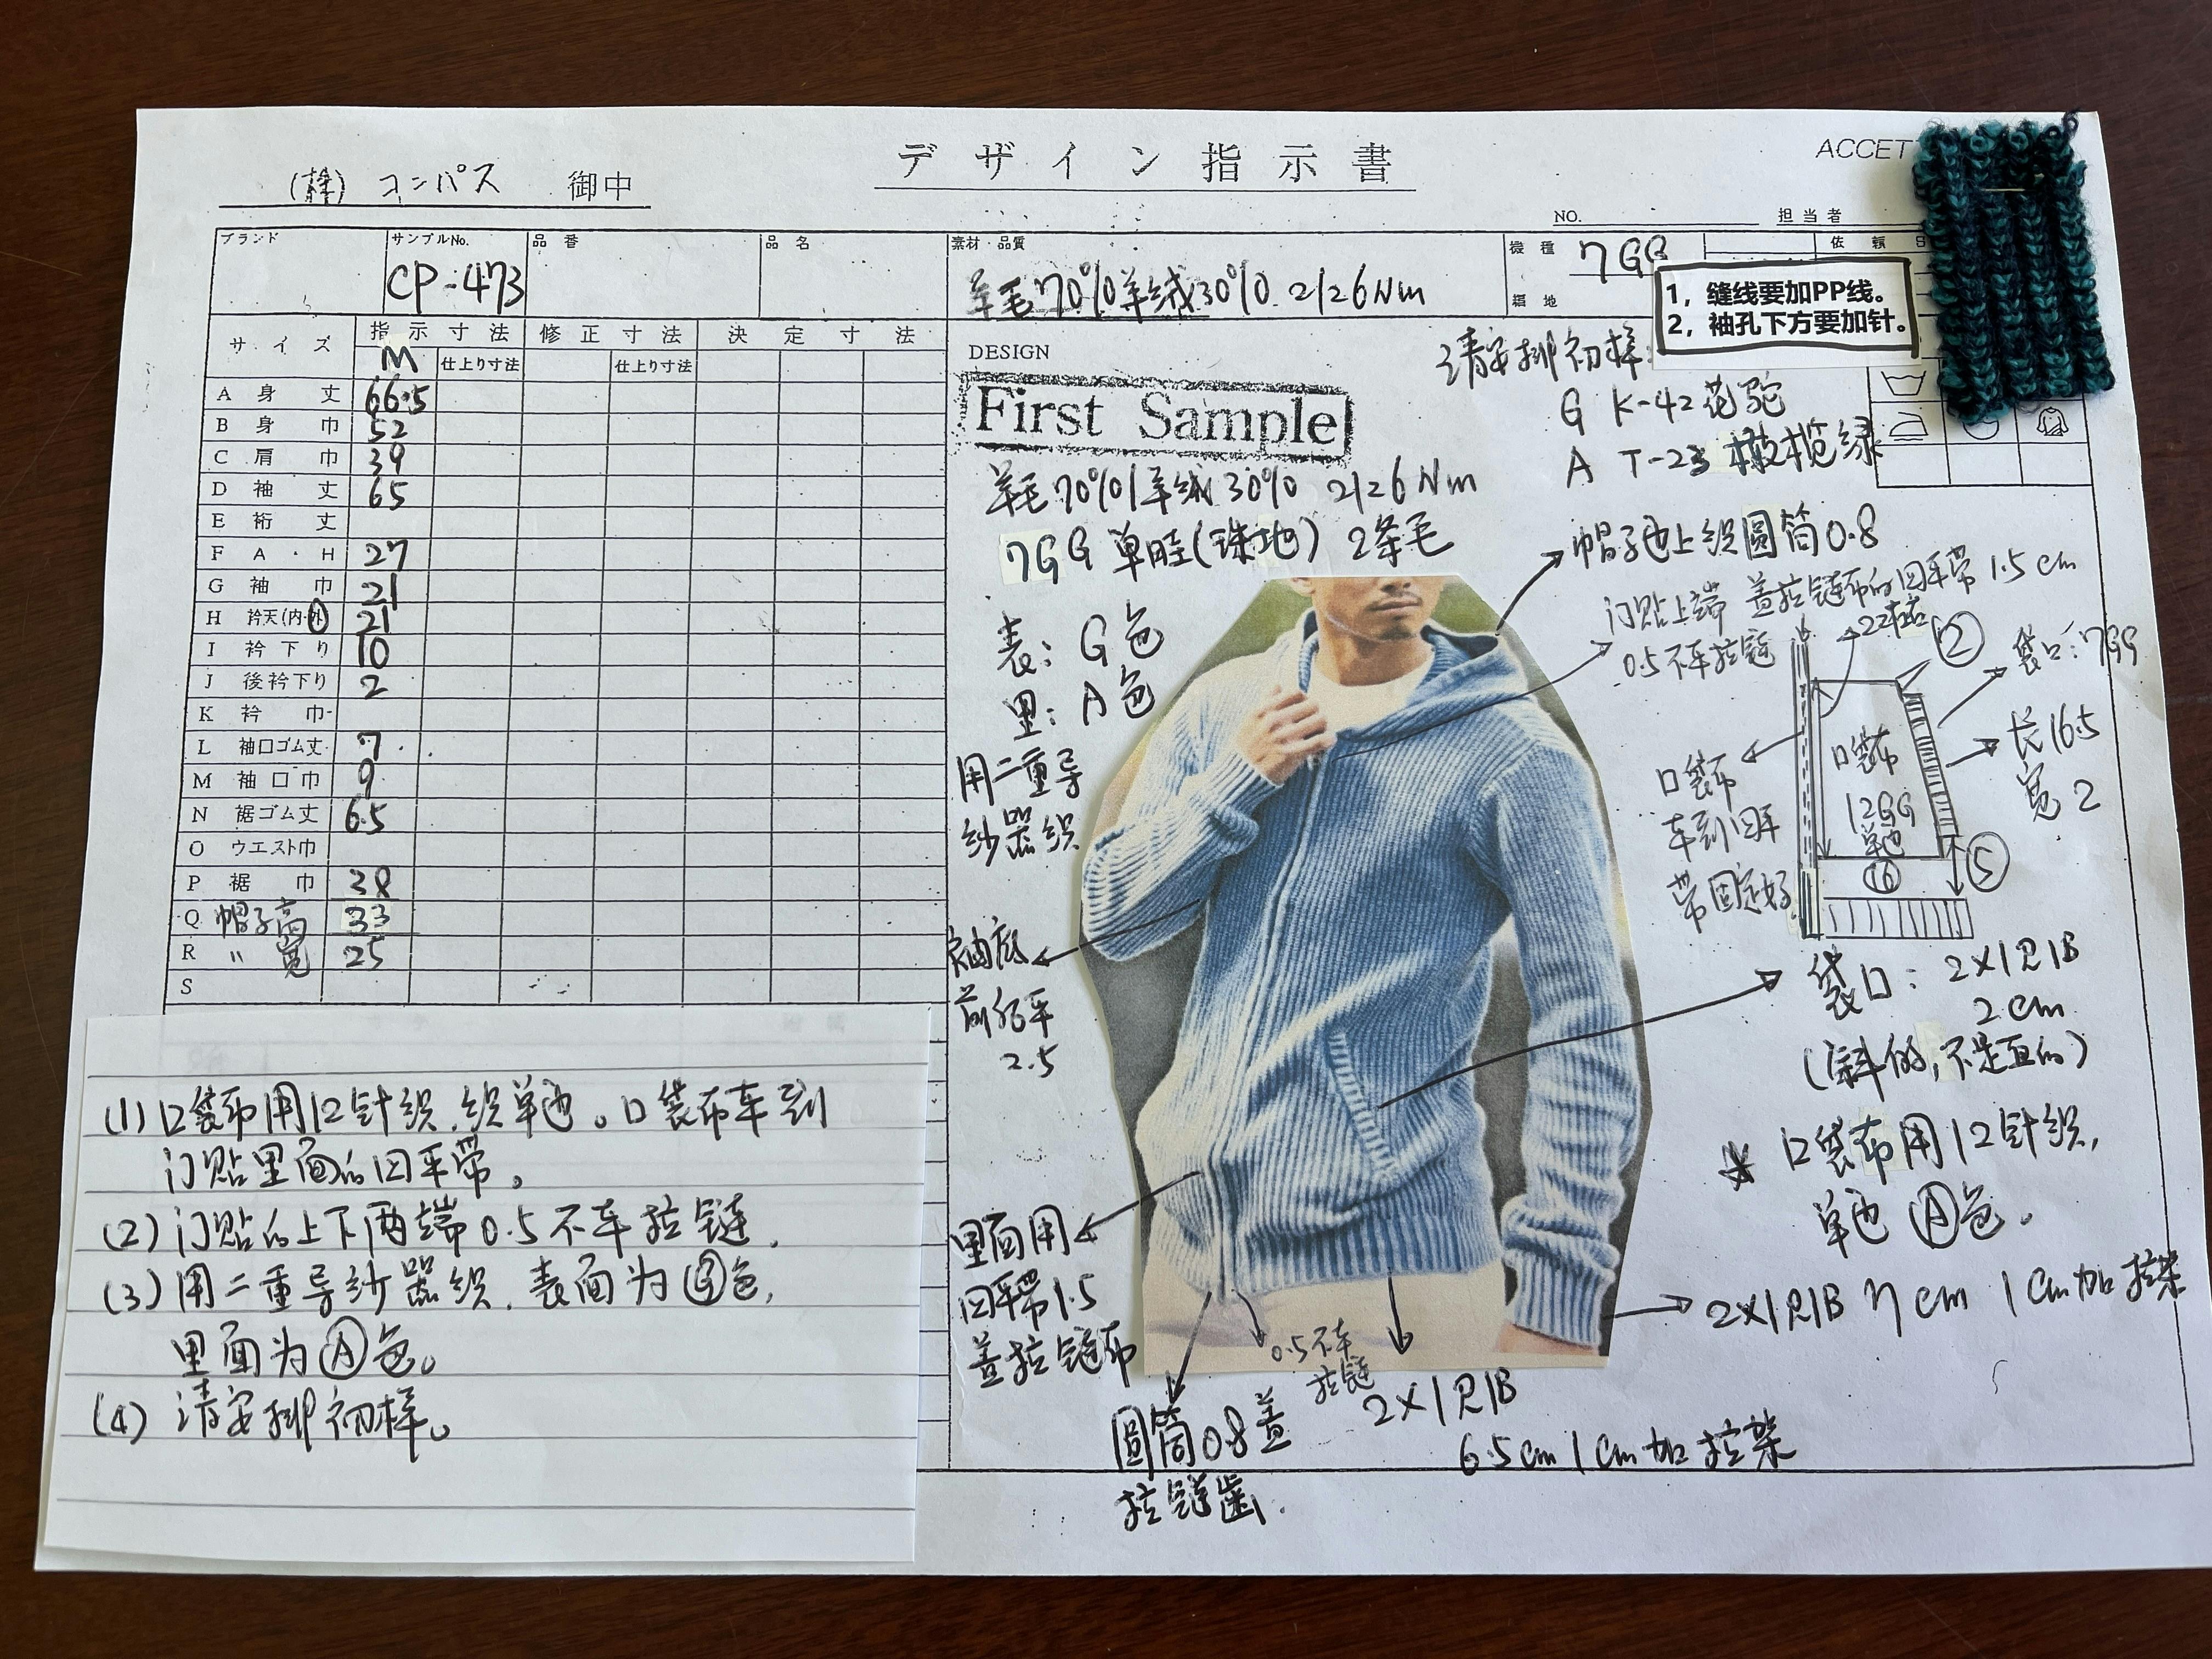 デザイン指示書
ACCET
(株) コンパス 御中
NO. 担当者
ブランド
サンプルNo.
CP-473
品番
品名
素材・品質
羊毛70%羊绒30% 2/26Nm
機種 7GG
編地
依頼
1，缝线要加PP线。
2，袖孔下方要加针。
サイズ
指示寸法 修正寸法 決定寸法
M 仕上り寸法 仕上り寸法
A 身丈 66.5
B 身巾 52
C 肩巾 39
D 袖丈 65
E 裄丈
F A・H 27
G 袖巾 21
H 衿天(内・外) 21
I 衿下り 10
J 後衿下り 2
K 衿巾
L 袖口ゴム丈 7
M 袖口巾 9
N 裾ゴム丈 6.5
O ウエスト巾
P 裾巾 38
Q 帽子高 33
R 〃 宽 25
S
(1) 口袋布用12针织，织单边。口袋布车到
门贴里面的回平带。
(2) 门贴的上下两端0.5不车拉链．
(3) 用二重导纱器织．表面为Ⓖ色，
里面为Ⓐ色。
(4) 请安排初样。
DESIGN
First Sample
请安排初样:
G K-42 花驼
A T-23 橄榄绿
羊毛70%/羊绒30% 2/26Nm
7GG 单畦(珠地) 2条毛
表: G色
里: A色
用二重导
纱器织
帽子边上织圆筒0.8
门贴上端 盖拉链布的回平带 1.5cm
0.5不车拉链
②
袋口: 7GG
长16.5
宽2
口袋布
12GG
单边
⑯
⑤
口袋布
车到回平
带固定好
袖底
2.5
袋口: 2×1RIB
2cm
(斜的,不是直的)
口袋布用12针织,
单边 Ⓐ色。
里面用
回平带1.5
盖拉链布
2×1RIB 7cm 1cm加拉架
0.5不车
拉链
2×1RIB
6.5cm 1cm加拉架
圆筒0.8盖
拉链齿.